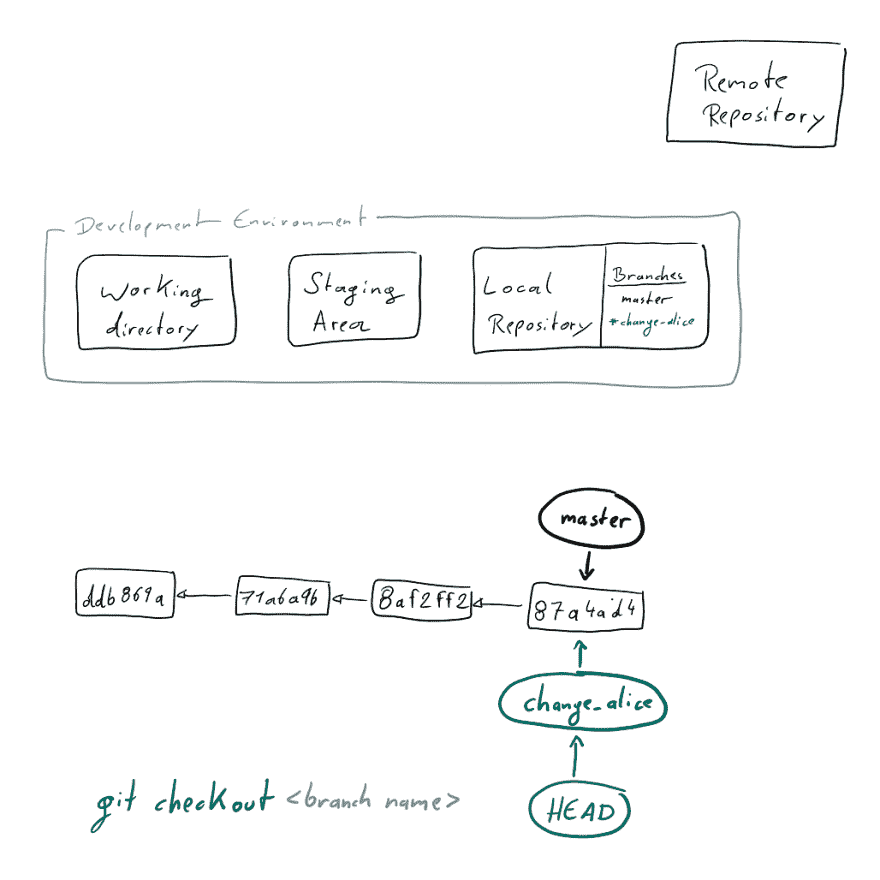 Remote
Repository
Development Environment
Working
directory
Staging
Area
Local
Repository
Branches
master
*change_alice
master
ddb869a
71a6a9b
8af2ff2
87a4ad4
change_alice
git checkout <branch name>
HEAD